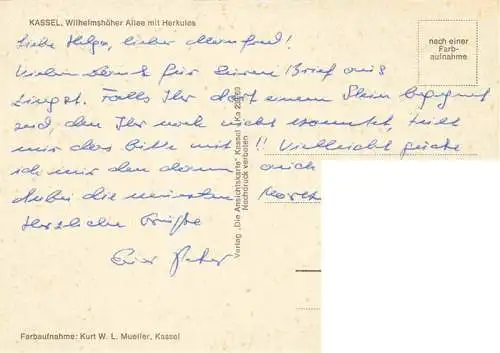 KASSEL, Wilhelmshöher Allee mit Herkules
nach einer
Farb-
aufnahme
Liebe Helga, lieber Manfred!
Vielen Dank für Euren Brief aus
Zingst. Falls Ihr dort einem Stein begegnet
seid, den Ihr noch nicht kanntet, teilt
mir das bitte mit!! Vielleicht
ich mir den dann auch
dabei die
Herzliche Grüße
Euer Peter
Verlag „Die Ansichtskarte" Kassel
Nachdruck verboten
Farbaufnahme: Kurt W. L. Mueller, Kassel